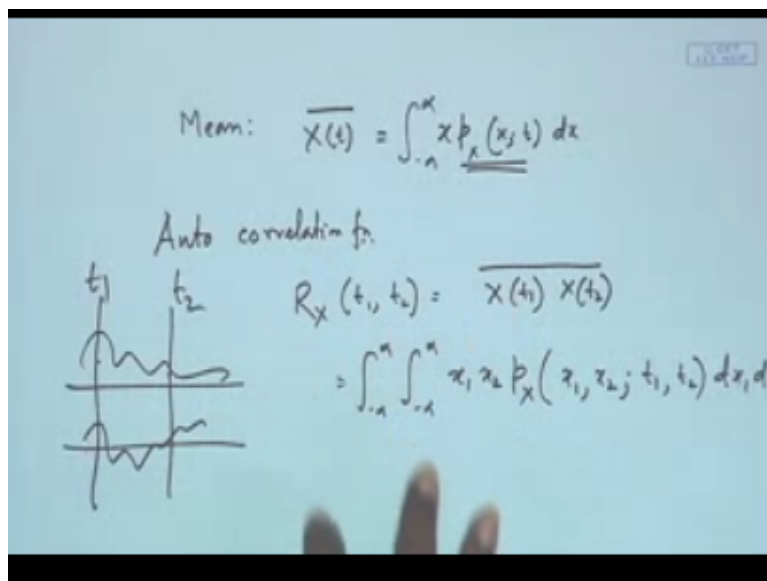 Mean: \overline{X(t)} = ∫_{-α}^{α} x p_x(x; t) dx
Auto correlation fn.
t_1 t_2 R_X (t_1, t_2) = \overline{X(t_1) X(t_2)}
= ∫_{-α}^{α} ∫_{-α}^{α} x_1 x_2 p_x (x_1, x_2; t_1, t_2) dx_1 d